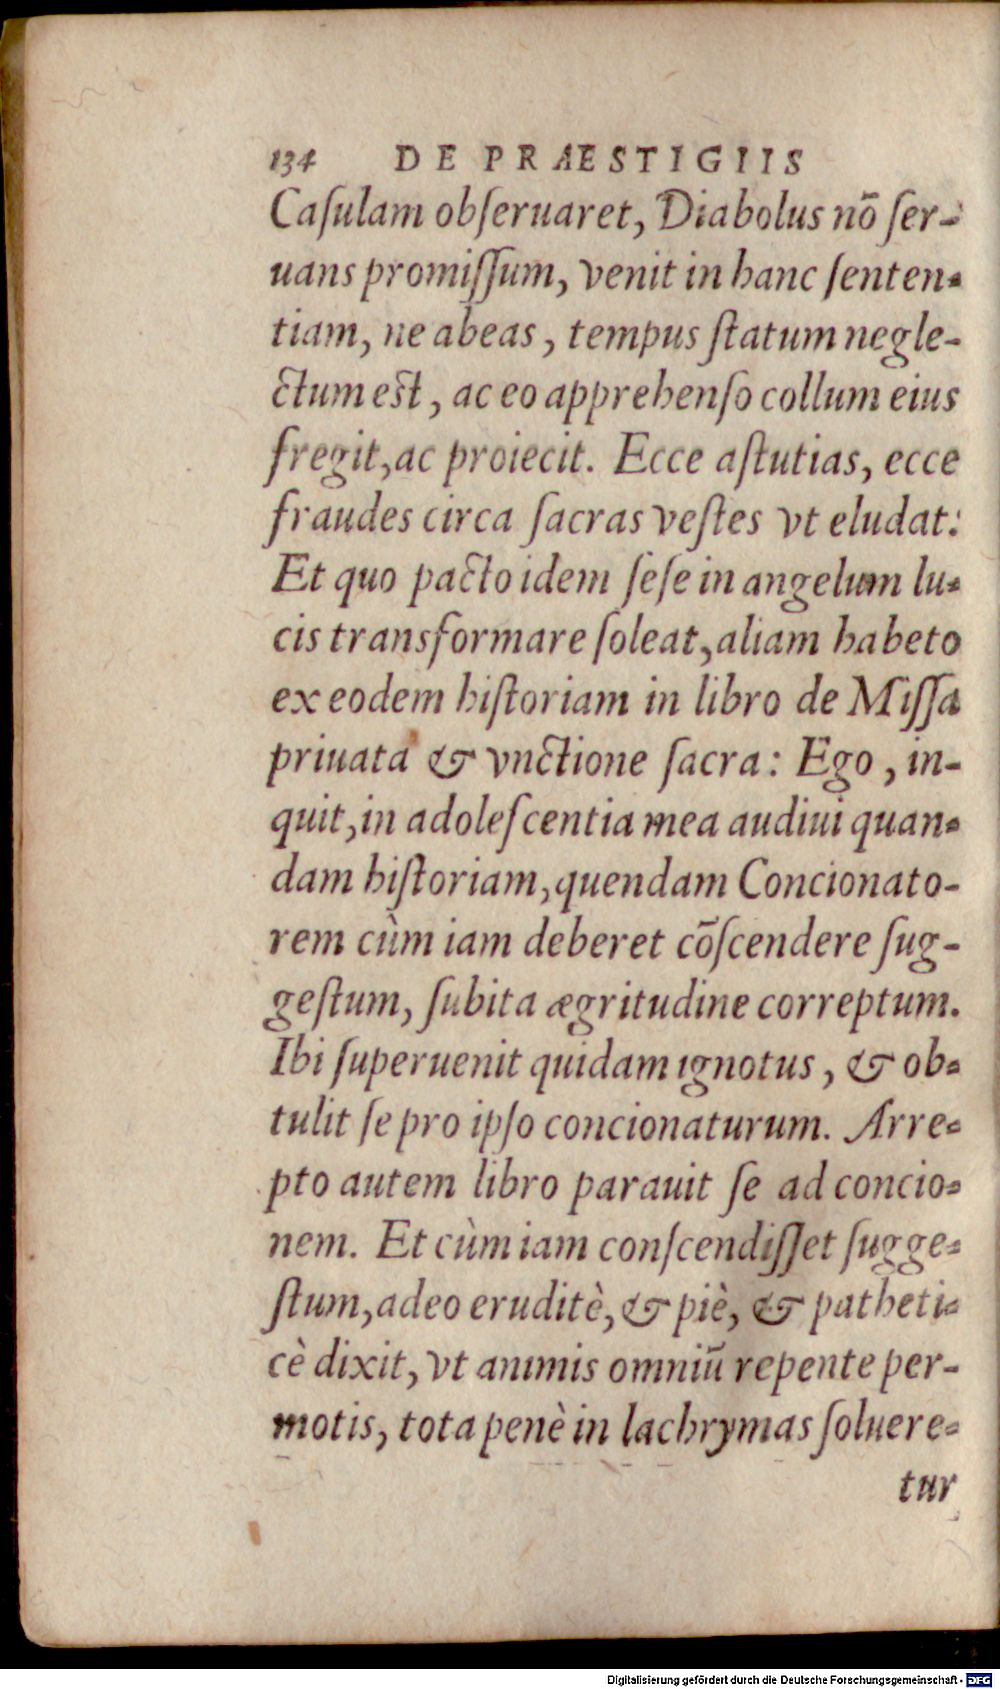 134 DE PRAESTIGIIS
Caſulam obſeruaret, Diabolus nō ſer-
uans promiſſum, venit in hanc ſenten-
tiam, ne abeas, tempus ſtatum negle-
ctum est, ac eo apprehenſo collum eius
fregit, ac proiecit. Ecce aſtutias, ecce
fraudes circa ſacras veſtes vt eludat:
Et quo pacto idem ſeſe in angelum lu-
cis transformare ſoleat, aliam habeto
ex eodem hiſtoriam in libro de Miſſa
priuata & vnctione ſacra: Ego, in-
quit, in adoleſcentia mea audiui quan-
dam hiſtoriam, quendam Concionato-
rem cùm iam deberet cōſcendere ſug-
geſtum, ſubita ægritudine correptum.
Ibi ſuperuenit quidam ignotus, & ob-
tulit ſe pro ipſo concionaturum. Arre-
pto autem libro parauit ſe ad concio-
nem. Et cùm iam conſcendiſſet ſugge-
ſtum, adeo eruditè, & piè, & patheti-
cè dixit, vt animis omniū repente per-
motis, tota penè in lachrymas ſoluere-
tur
Digitalisierung gefördert durch die Deutsche Forschungsgemeinschaft - DFG